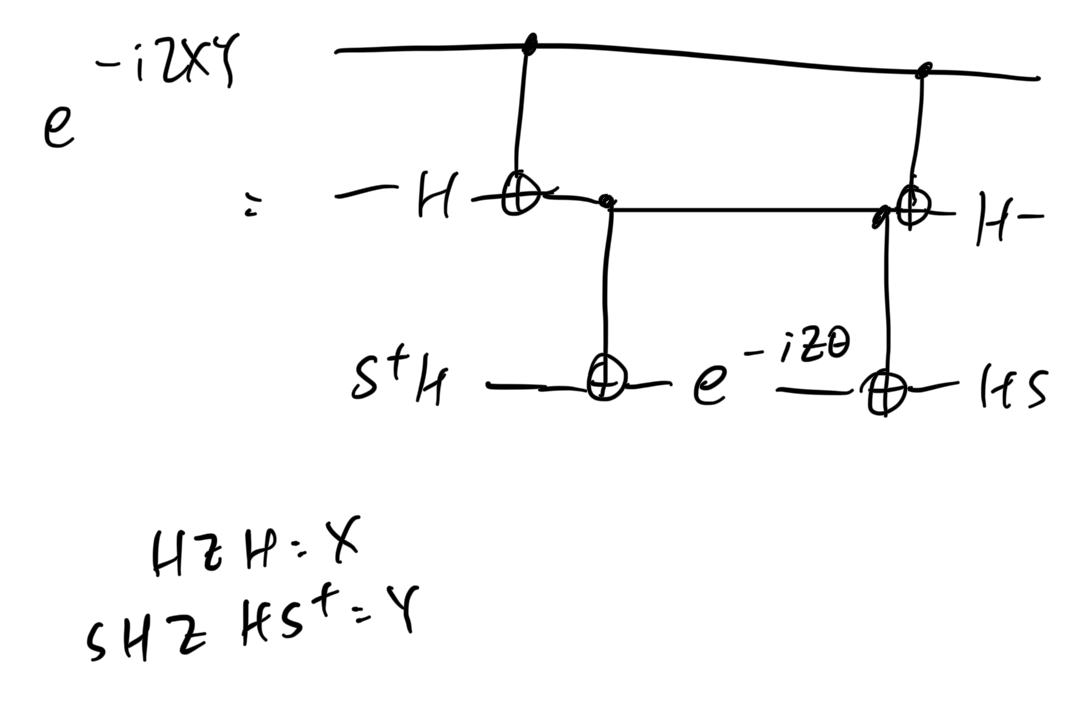 e^{-iZXY}
= H H
S†H e^{-iZθ} HS
HZH = X
SHZHS† = Y